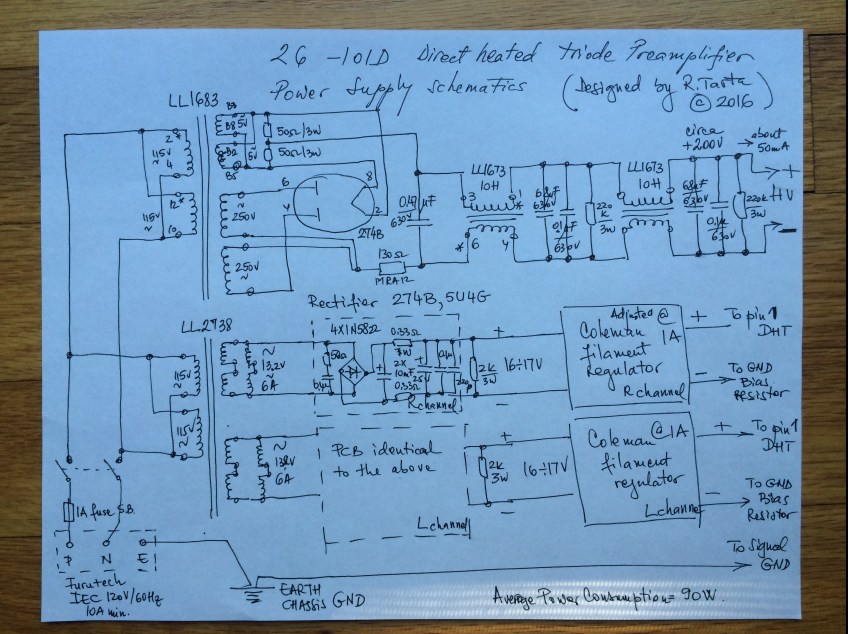 26 -101D Direct heated triode Preamplifier
Power Supply schematics (Designed by R. Tasta
© 2016)
LL1683
B5
B8 5V
B2
5V
B5
50Ω/3W
50Ω/3W
2*
115V
~
4
12*
115V
~
10
~
250V
250V
~
6
4
8
2
274B
130Ω
MRA12
0.47µF
630V
LL1673
10H
3
1
*
*
6
4
68µF
630V
0.1µF
630V
220K
3W
LL1673
10H
circa
+200V
→ about
50mA
68µF
630V
0.1µ
630V
220K
3W
+
HV
-
Rectifier 274B, 5U4G
LL2738
115V
~
115V
~
~
13.2V
~
6A
4X1N5822
50Ω
0.1µ
0.33Ω
3W
2X
10mF
25V
0.33Ω
0.1µ
R channel
2K
3W
+
16÷17V
-
Adjusted @
Coleman 1A
filament
Regulator
R channel
+
To pin 1
DHT
-
To GND
Bias
Resistor
~
13.2V
6A
PCB identical
to the above
L channel
+
2K
3W
16÷17V
-
Coleman @ 1A
filament
regulator
L channel
+
To pin 1
DHT
-
To GND
Bias
Resistor
1A fuse S.B.
P N E
Furutech
IEC 120V/60Hz
10A min.
EARTH
CHASSIS GND
To Signal
GND
Average Power Consumption = 90W.